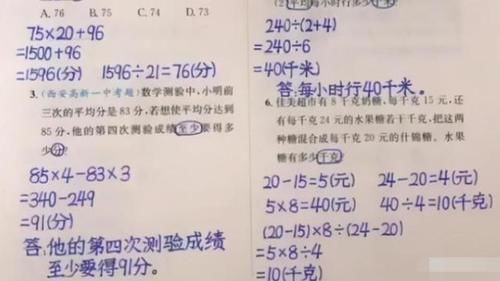 A. 76 B. 75 C. 74 D. 73
75×20+96
=1500+96
=1596(分) 1596÷21=76(分)
3. (西安高新一中考题) 数学测验中,小明前
三次的平均分是 83 分,若想使平均分达到
85 分,他的第四次测验成绩至少要得多
少分?
85×4-83×3
=340-249
=91(分)
答:他的第四次测验成绩
至少要得91分。
(2)平均每小时行多少千米?
240÷(2+4)
=240÷6
=40(千米)
答:每小时行40千米。
6. 佳美超市有 8 千克奶糖,每千克 15 元,还
有每千克 24 元的水果糖若干千克,把这两
种糖混合成每千克 20 元的什锦糖。水果
糖有多少千克?
20-15=5(元) 24-20=4(元)
5×8=40(元) 40÷4=10(千克)
(20-15)×8÷(24-20)
=5×8÷4
=10(千克)